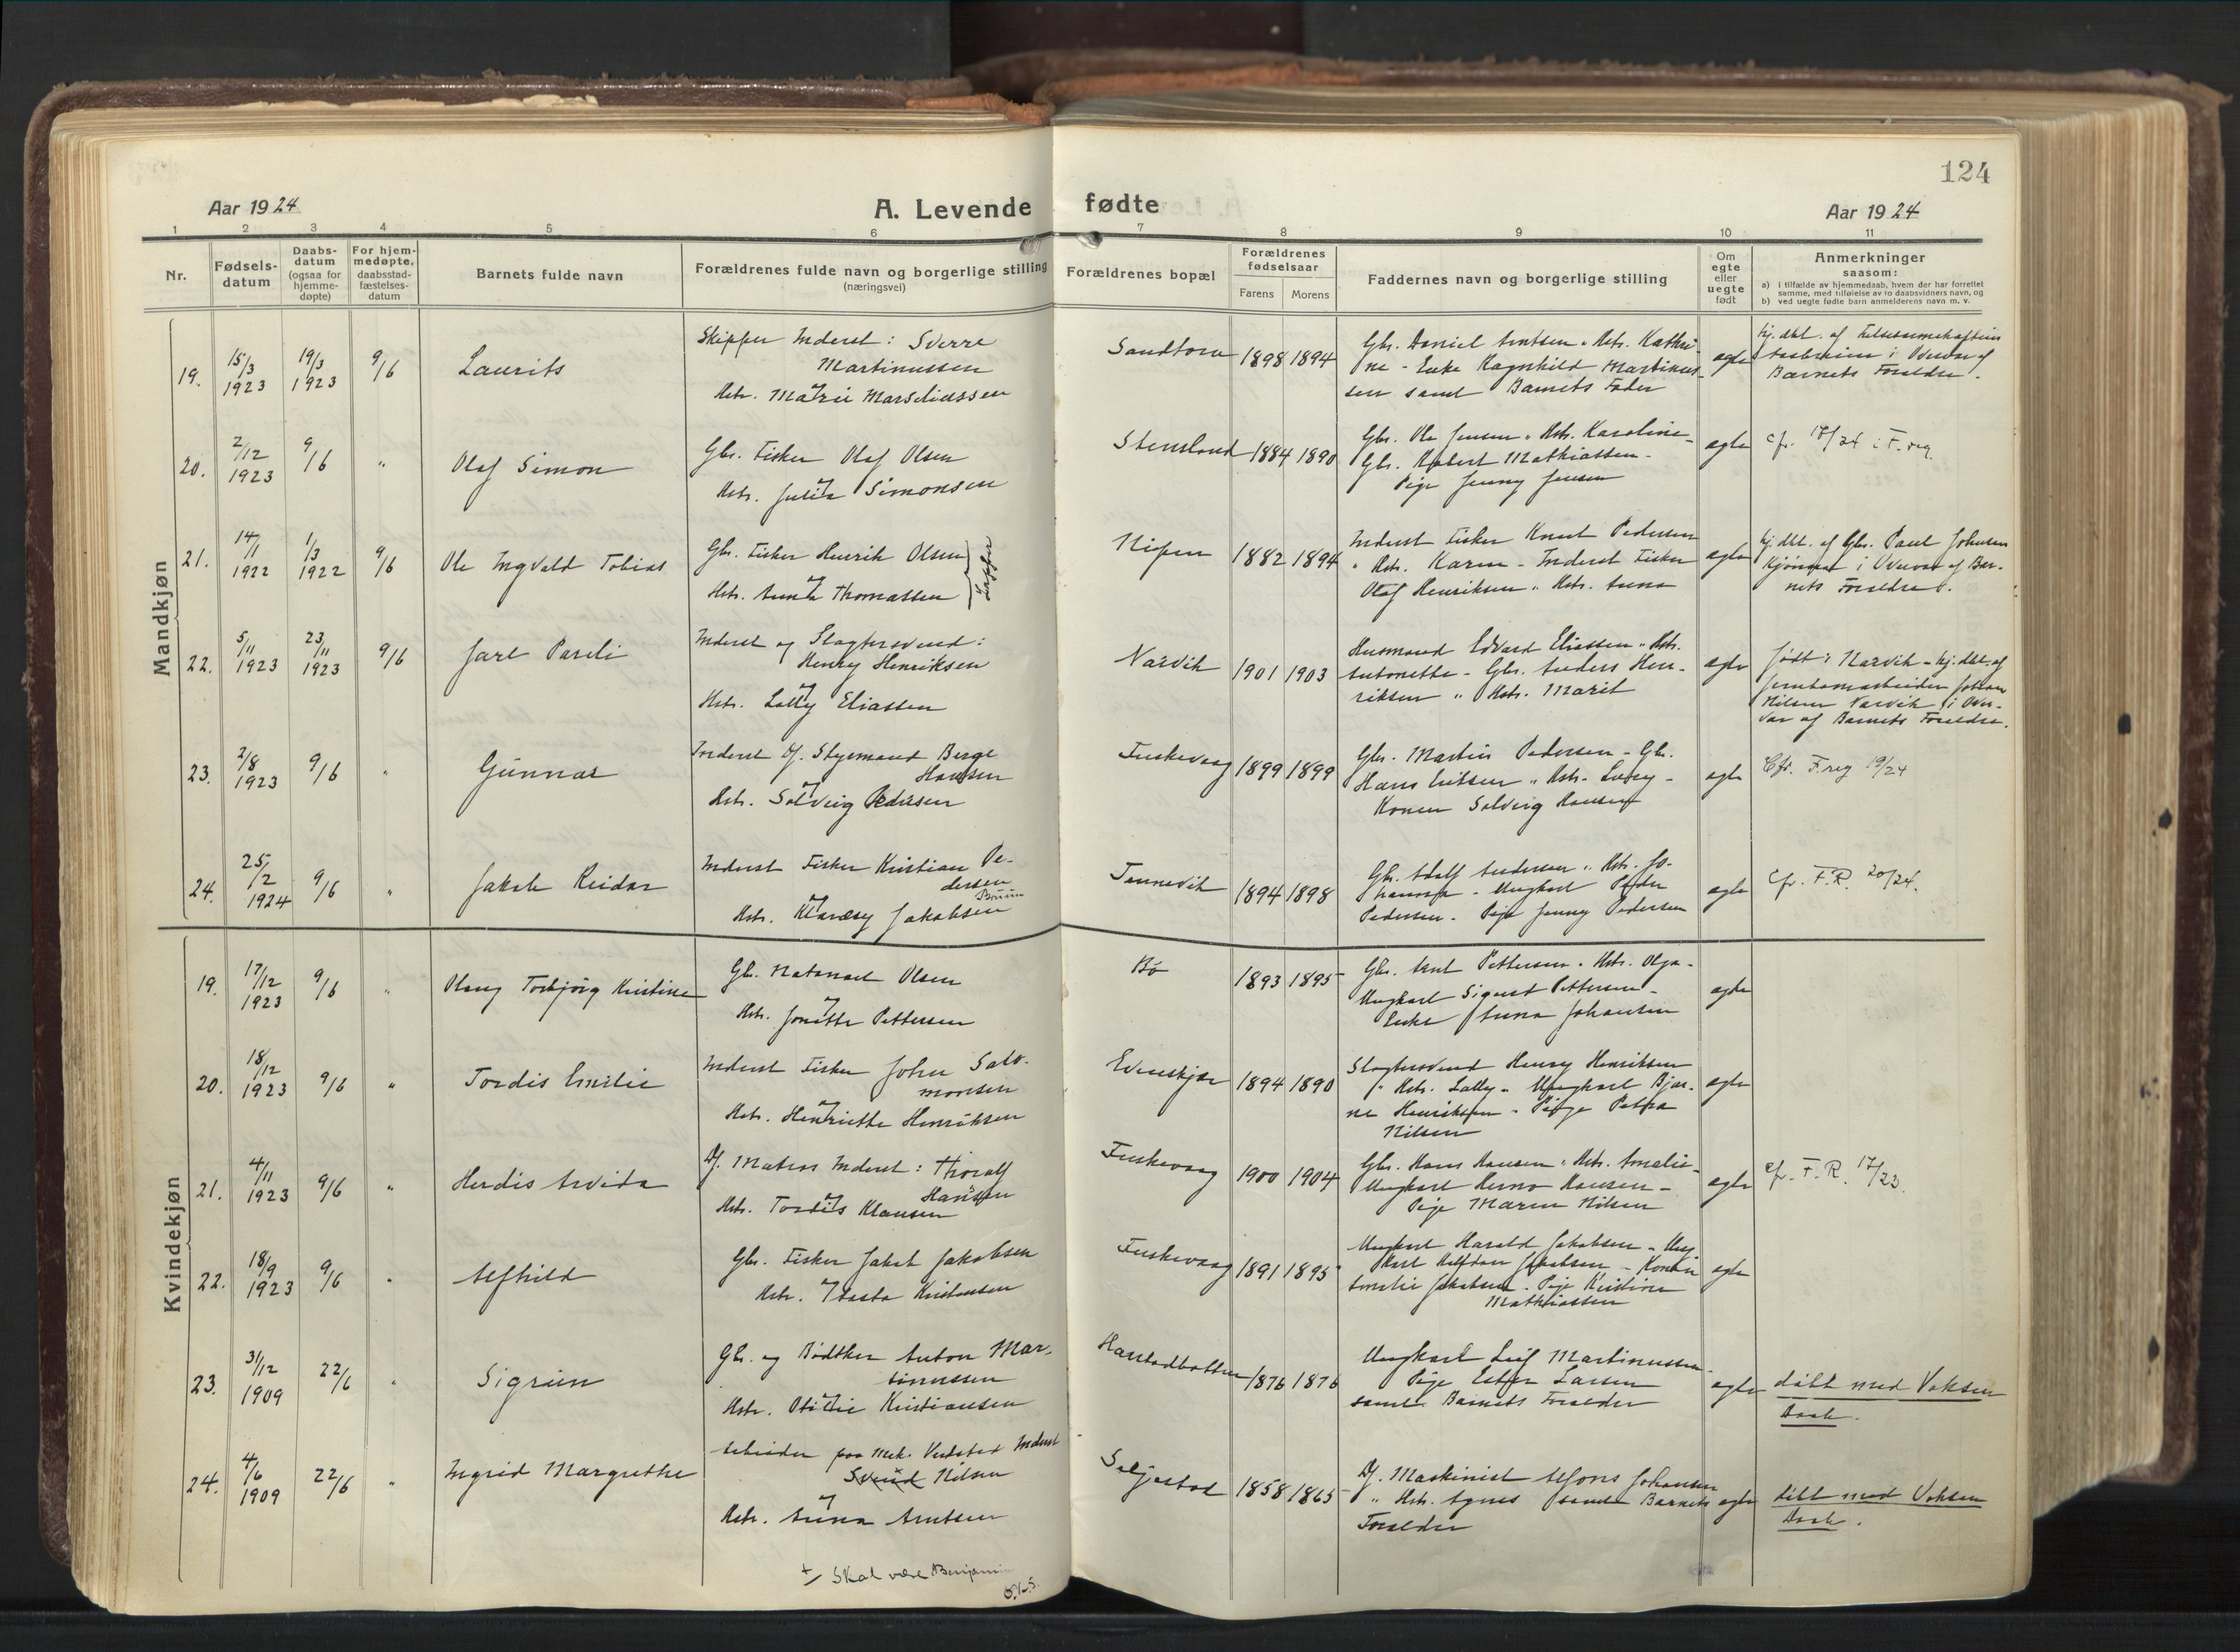 124
Aar 1924
A. Levende fødte
Aar 1924
1 2 3 4 5 6 7 8 9 10 11
Nr.
Fødsels-
datum
Daabs-
datum
(ogsaa for
hjemme-
døpte)
For hjem-
medøpte,
daabsstad-
fæstelses-
datum
Barnets fulde navn
Forældrenes fulde navn og borgerlige stilling
(næringsvei)
Forældrenes bopæl
Forældrenes
fødselsaar
Farens Morens
Faddernes navn og borgerlige stilling
Om
egte
eller
uegte
født
Anmerkninger
saasom:
a) i tilfælde av hjemmedaab, hvem der har forrettet
samme, med tilføielse av to daabsvidners navn, og
b) ved uegte fødte barn anmelderens navn m. v.
Mandkjøn
19. 15/3 1923 19/3 1923 9/6 Laurits
Skipper Inderst: Sverre
Martinussen
Hstr. Marie Marseliussen
Sandtorv 1898 1894
Gbr. Daniel Arntsen " Hstr. Kathri-
ne - Enke Ragnhild Martinus-
sen samt Barnets Fader
egte
hj. dbt. af
i Overvær af
Barnets Forældre.
20. 2/12 1923 9/6 " Olaf Simon
Gbr. Fisker Olaf Olsen
Hstr. Julie Simonsen
Stensland 1884 1890
Gbr. Ole Jensen " Hstr. Karoline -
Gbr. Robert Mathiassen -
Pige Jenny Jensen
egte
cfr. 18/24 i F. reg.
21. 14/1 1922 1/3 1922 9/6 Ole Ingvald Tobias
Gbr. Fisker Henrik Olsen
Hstr. Anna Thomassen
Nipen 1882 1894
Inderst Fisker Knut Pedersen
" Hstr. Karen - Inderst Fisker
Olaf Henriksen " Hstr. Anna
egte
hj. dbt. af Gbr. Paul Johnsen
Kjønnæs i Overvær af Bar-
nets Forældre.
22. 5/11 1923 23/11 1923 9/6 Jarl Pareli
Inderst og Slagtersvend:
Henry Henriksen
Hstr. Lally Eliassen
Narvik 1901 1903
Husmand Edvard Eliassen " Hstr.
Antonette - Gbr. Anders Hen-
riksen " Hstr. Marit
egte
født i Narvik - hj. dbt. af
Jernbanearbeider Johan
Nilsen Narvik i Over-
vær af Barnets Forældre.
23. 2/8 1923 9/6 " Gunnar
Inderst Df. Styrmand Berge
Hansen
Hstr. Solveig Pedersen
Fuskevaag 1899 1899
Gbr. Martin Pedersen - Gbr.
Hans Eriksen " Hstr. Lovey -
Konen Solveig Hansen
egte
Cfr. F. reg 19/24
24. 25/2 1924 9/6 " Jakob Reidar
Inderst Fisker Kristian Pe-
dersen
Bruun
Hstr. Klaræsy Jakobsen
Tennevik 1894 1898
Gbr. Adolf Andersen " Hstr. Jo-
hanna - Ungkarl Peder
Pedersen - Pige Jenny Pedersen
egte
Cfr. F.R. 20/24.
Kvindekjøn
19. 17/12 1923 9/6 " Olaug Torbjørg Kristine
Gbr. Natanael Olsen
Hstr. Jonette Pettersen
Bø 1893 1895
Gbr. Arnt Pettersen " Hstr. Olga -
Ungkarl Sigurd Pettersen -
Enke Anna Johansen
egte
20. 18/12 1923 9/6 " Tordis Emilie
Inderst Fisker John Salo-
monsen
Hstr. Henriette Henriksen
Evenskjær 1894 1890
Slagtersvend Henry Henriksen
" Hstr. Lally - Ungkarl Bjar-
ne Henriksen - Pige Petra
Nilsen
egte
21. 4/11 1923 9/6 " Herdis Arvida
Df. Matros Inderst: Thoralf
Hansen
Hstr. Tordis Klausen
Fuskevaag 1900 1904
Gbr. Hans Hansen " Hstr. Amalie -
Ungkarl Hansen -
Pige Maren Nilsen
egte
cfr. F.R. 17/23.
22. 18/9 1923 9/6 " Alfhild
Gbr. Fisker Jakob Jakobsen
Hstr. Aasta Kristensen
Fuskevaag 1891 1895
Ungkarl Harald Jakobsen - Ung-
karl Halfdan Jakobsen - Konen
Amelie Jakobsen - Pige Kristine
Mathiassen
egte
23. 31/12 1909 22/6 " Sigrun
Gbr. og Bødtker Anton Mar-
tinussen
Hstr. Otilie Kristiansen
Harstadbotten 1876 1876
Ungkarl Leif Martinussen -
Pige Ester Larsen
samt Barnets Forældre
egte
døbt med Voksen
Daab.
24. 4/6 1909 22/6 " Ingrid Margrethe
Arbeider paa Mek. Verksted Inderst
Svend Nilsen
Hstr. Anna Arntsen
Seljestad 1858 1865
Df. Maskinist Alfons Johansen
" Hstr. Agnes samt Barnets
Forældre
egte
døbt med Voksen
Daab.
+/ Skal være Benjamin